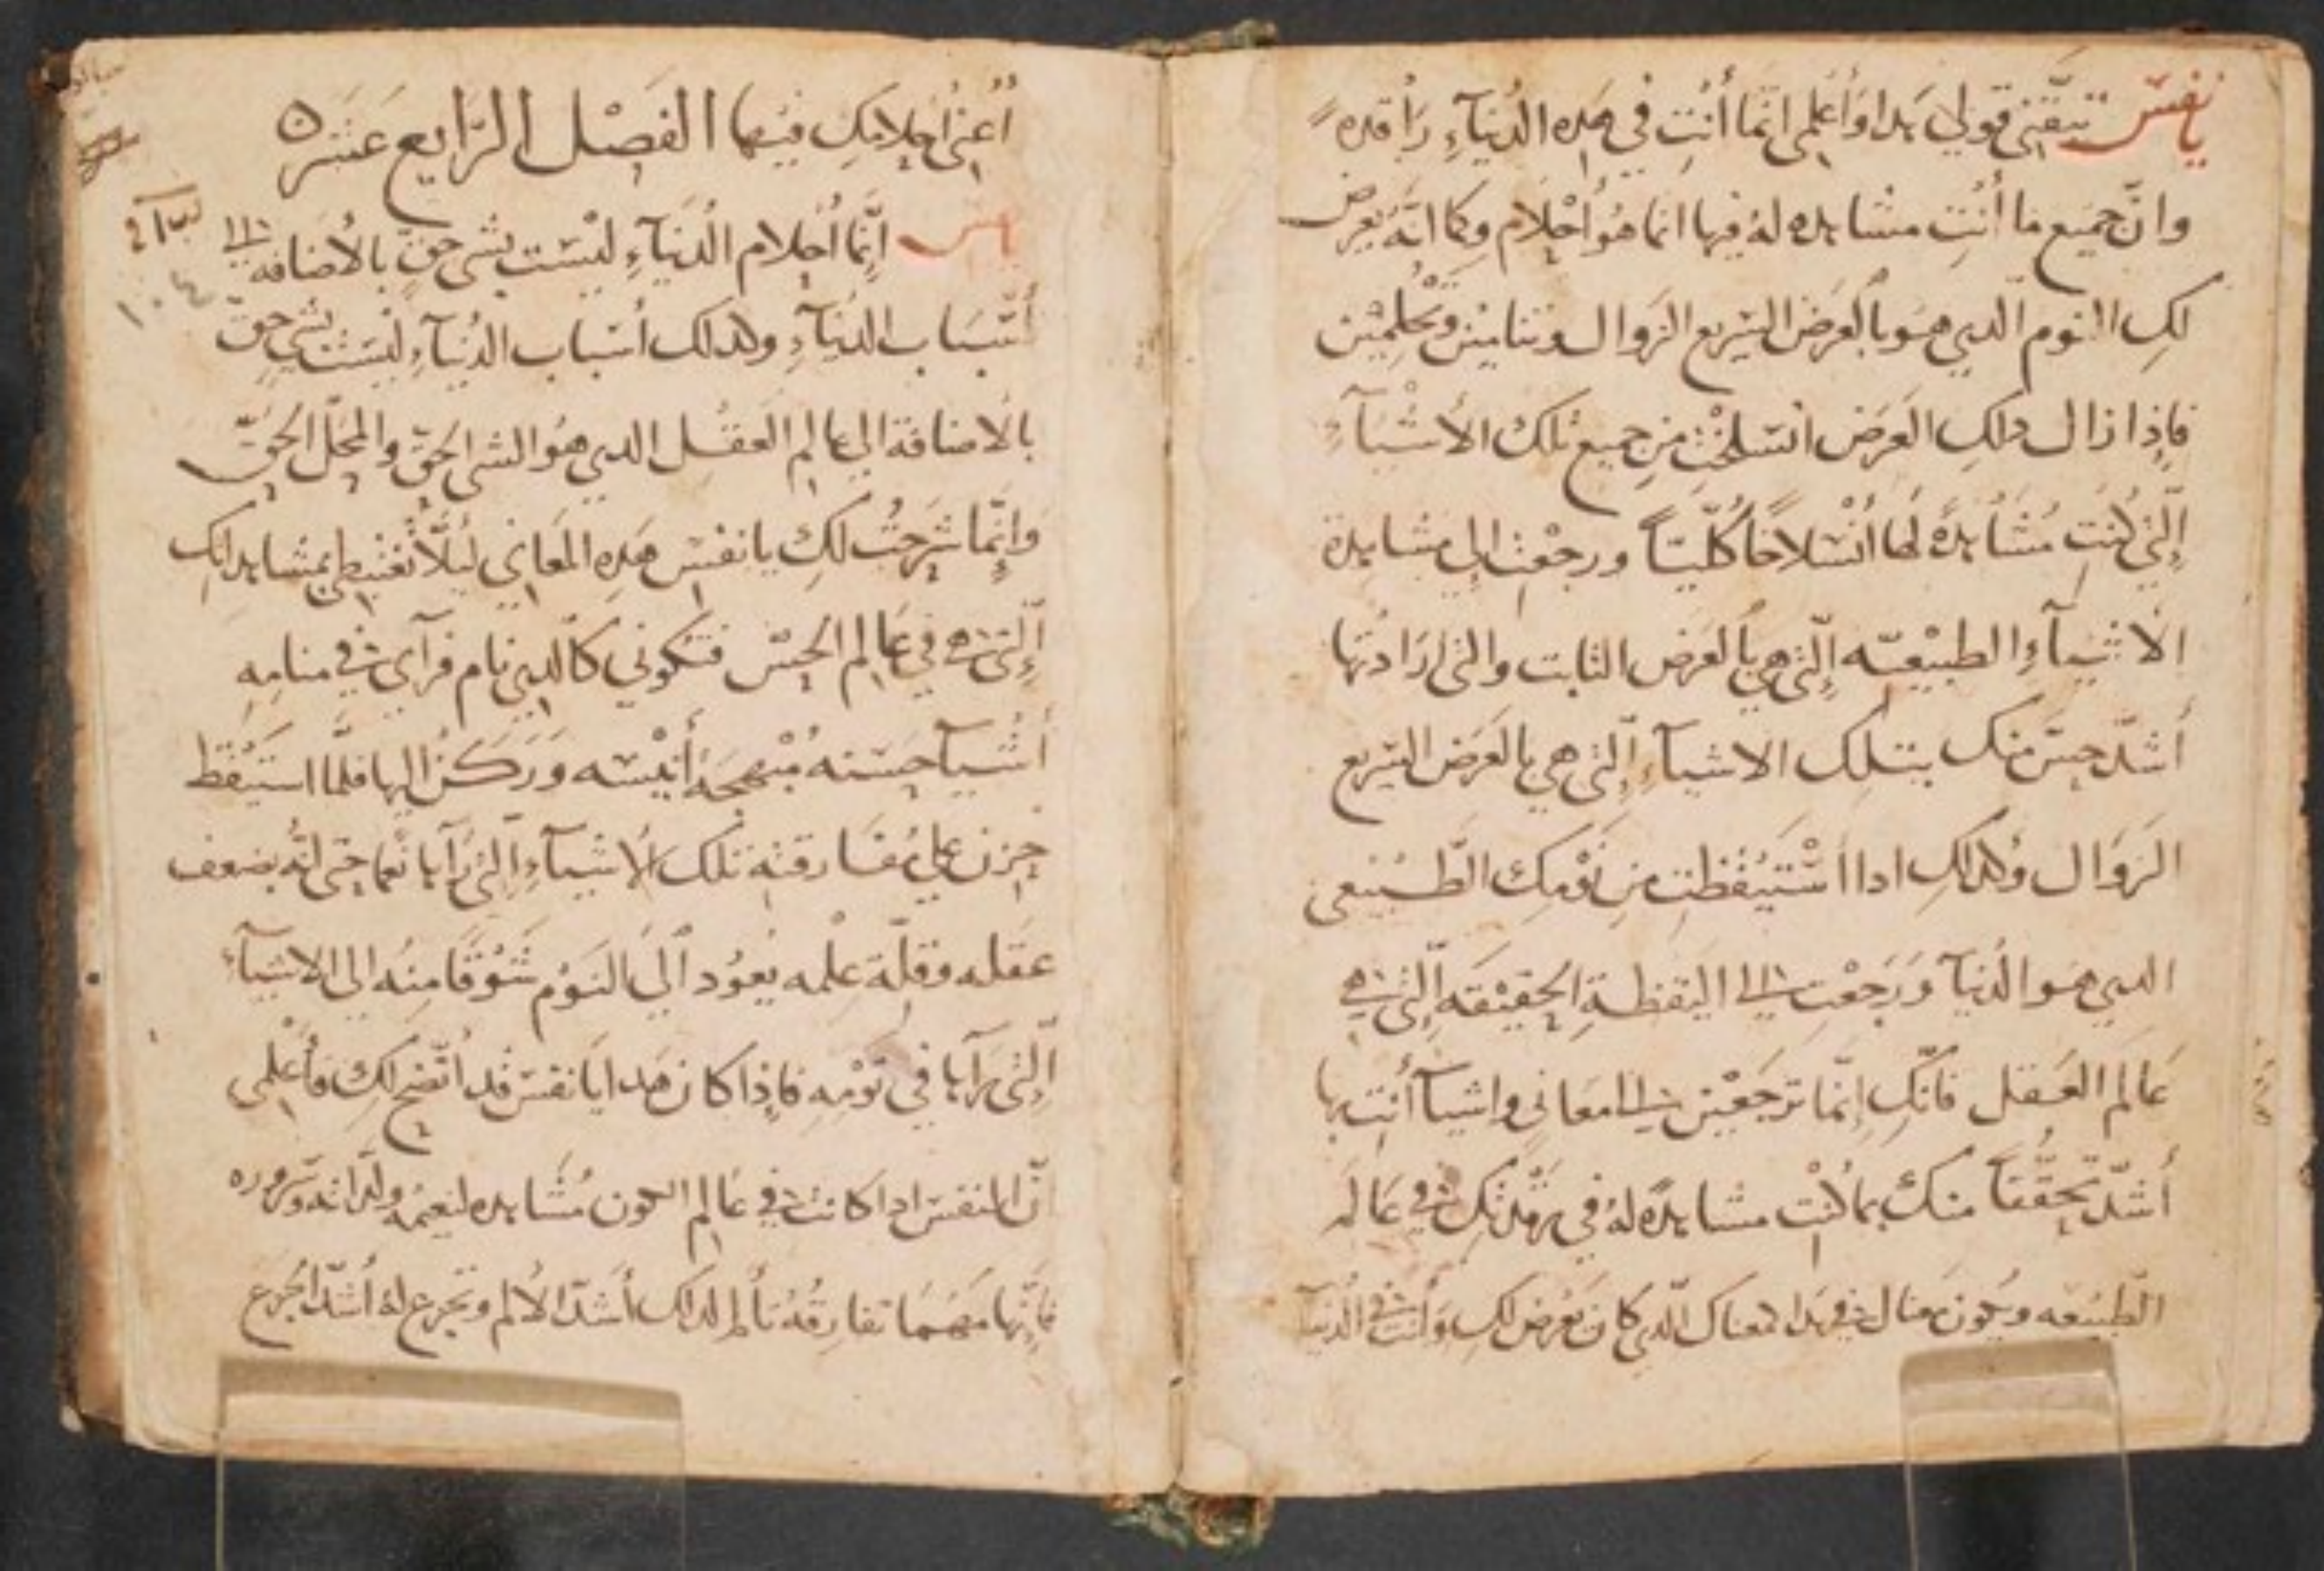 يا نفس تيقني قولي هدا واعلمي انما أنتِ في هده الدنيآءِ راقده
وانّ جميع ما أنتِ مشاهده له فيها انما هو أحلام وكما انّه يعرض
لكِ النوم الدي هو بالعرض السريع الزوال وتنامين وتحلمين
فاٍذا زال دلكِ العرض انسلختِ من جميع تلك الأشيآءِ
التي كنتِ مُشاهدةً لها انسلاخاً كُليّاً ورجعتِ الي مشاهدة
الاشيآءِ الطبيعيّه التي هي بالعرض الثابت والتي ارادتها
أشدّ حسّ منك بتلك الاشيآءِ التي هي بالعرض السريع
الزوال وكدلكِ ادا استيقظتِ من نومكِ الطبيعي
الدي هو الدنيآ ورجعتِ الى اليقظةِ الحقيقه التي هي
عالم العقل فانّكِ إنّما ترجعين الى معاني واشيآ أنتِ بها
أشدّ تحققاً منك بما كنتِ مشاهدةً لهُ في رقدتكِ في عالم
الطبيعه ويكون مثال في هدا هناك الدي كان يعرض لكِ وأنتِ في الدنيآ
أعني أحلامكِ فيها الفصل الرابع عشر
يا نفس إنّما أحلام الدنيآءِ ليست بشي حقّ بالأضافه الى
أسباب الدنيآءِ وكدلك أسباب الدنيآءِ ليست بشي حقّ
بالاضافة الي عالم العقل الدي هو الشي الحقّ والمحلّ الحقّ
وانّما شرحتُ لكِ يا نفس هده المعاني ليلّا تغتبطي بمشاهداتكِ
التي هي في عالم الحسّ فتكوني كالدي نام فرآى في منامه
أشيآ حسنه مُبهجةُ أنيسه وركن اليها فلمّا استيقظ
حزن علي مفارقته تلك الاشيآءِ التي رآها نعما حتى انّه بضعف
عقله وقلّة علمه يعود آلي النوم شوقًا منه الى الاشيآءِ
التي رآها في نومه فاٍذا كان هدا يا نفس قد اتّضح لكِ فأعلمي
أنّ النفس ادا كانت في عالم الكون مُشاهده لنعيمه ولدّاته وسروره
فاٍنّها مهما تفارقه تألم لدلك أشدّ الألم وتجزع له أشدّ الجزع
١٠٤